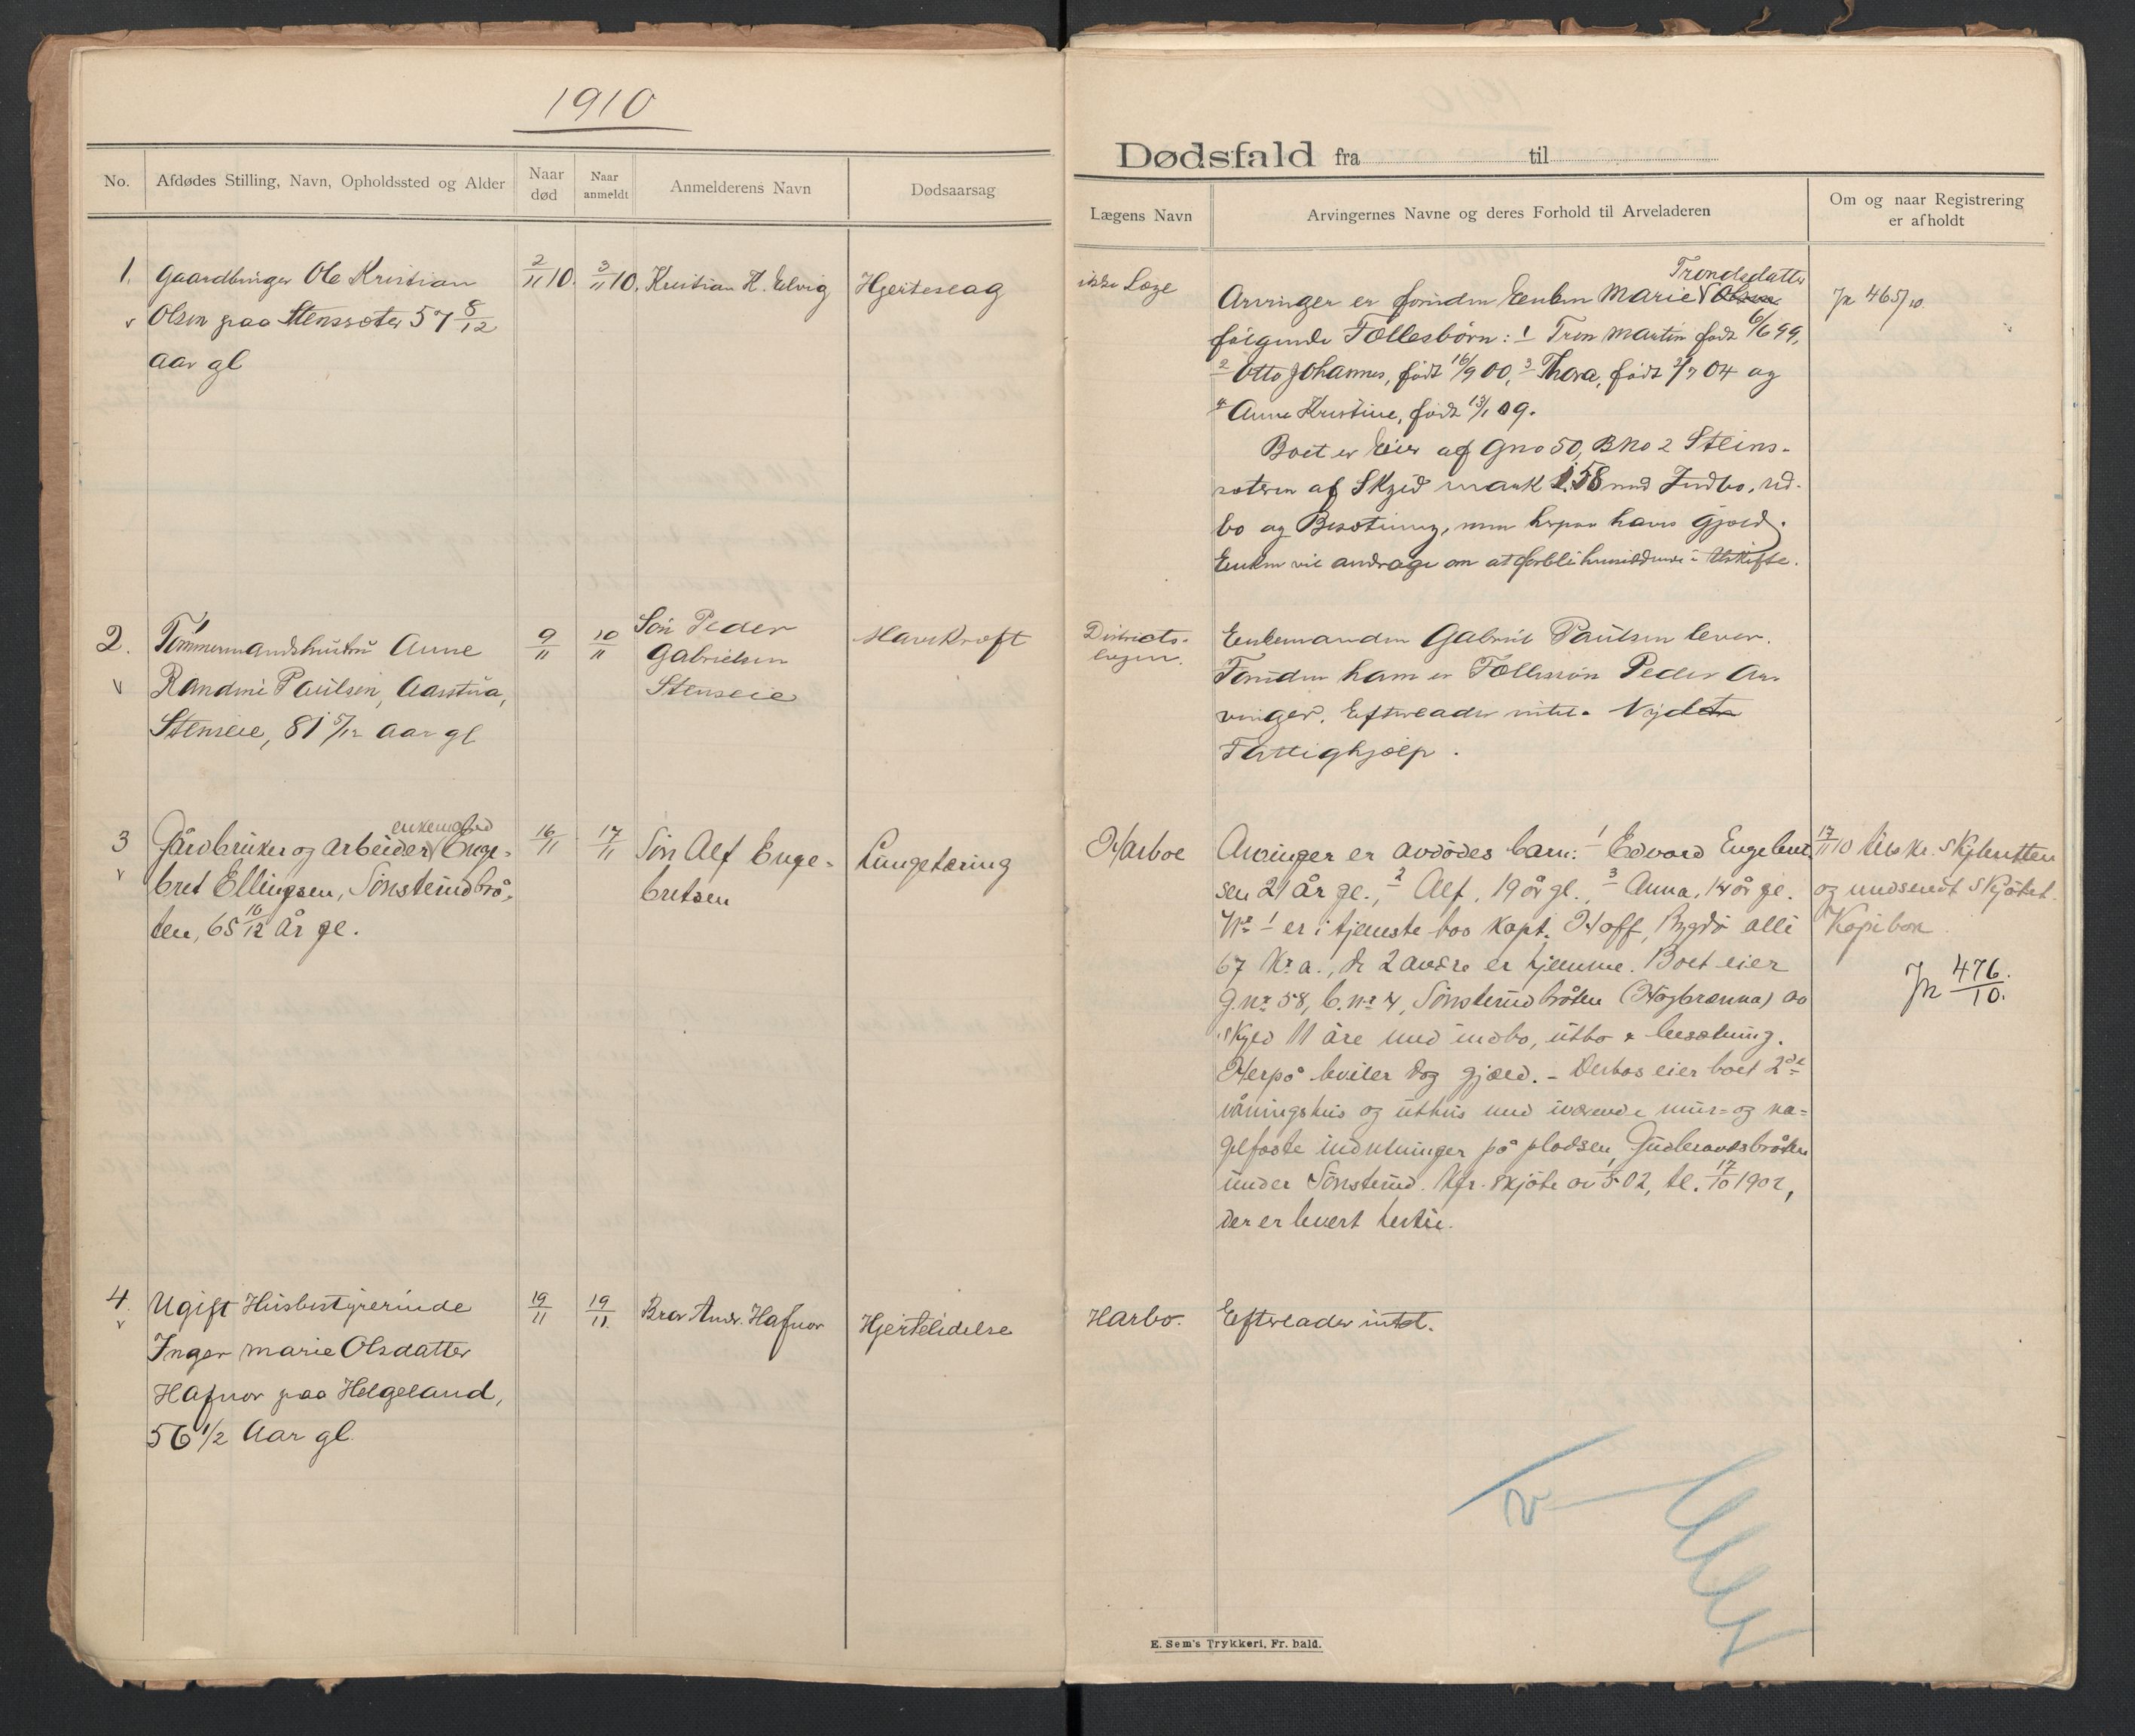 1910
Dødsfald fra til
No.
Afdødes Stilling, Navn, Opholdssted og Alder
Naar død
Naar anmeldt
Anmelderens Navn
Dødsaarsag
Lægens Navn
Arvingernes Navne og deres Forhold til Arveladeren
Om og naar Registrering
er afholdt
1.
Gaardbruger Ole Kristian
Olsen paa Stenssæter 57 8/12
aar gl
2/11 10.
3/11 10.
Kristian K. Elvig
Hjerteslag
ikke Læge
Trondsdatter
Arvinger er foruden Enken Marie Olsen
følgende Fællesbörn: 1 Tron Martin født 6/6 99,
2 Otto Johannes, født 16/9 00, 3 Thora, født 3/7 04 og
4 Anne Kristine, født 13/1 09.
Boet er Eier af Gno 50, BNo 2 Steins-
sæteren af Skyld mark 1.58 med Indbo, Ud-
bo og Besætning, men herpaa hviler Gjæld.
Enken vil andrage om at forbli hensiddende i Uskifte.
Jr 465/10.
2.
Tömmermandshustru Anne
Randine Paulsen, Aasstua,
Stenseie, 81 5/12 Aar gl
9/11
10/11
Sön Peder
Gabrielsen
Stenseie
Marvkræft
Districts-
lægen.
Enkemanden Gabriel Paulsen lever.
Foruden ham er Fællessön Peder Ar-
vinger. Efterlader intet. Nydt
Fattighjælp.
3
enkemand
Gårdbruker og arbeider Enge-
bret Ellingsen, Sönsterudbrå-
ten, 65 10/12 år gl.
16/11
17/11
Sön Alf Enge-
bretsen
Lungetæring
Harboe
Arvinger er avdödes barn: 1 Edvard Engebret-
sen 21 år gl., 2 Alf, 19 år gl., 3 Anna, 14 år gl.
Nr 1 er i tjeneste hos Kapt. Hoff, Bygdö allé
67 Kr.a., de 2 andre er hjemme. Boet eier
G.nr 58, b.nr 4, Sönsterudbråten (Högbrænna) av
skyld 11 öre med indbo, utbo & besætning.
Herpå hviler dog gjæld. - Desuten eier boet 2de
våningshus og uthus med iværende mur- og na-
gelfaste indretninger på pladsen Gudbrandsbråten
under Sönsterud. Kfr. skjöte av 1/5 02, tl. 17/10 1902,
der er levert hertil.
17/11 10 Utskr. skifteretten
og undsendt skjötet.
Kopibok
Jr 476/10.
4.
Ugift Husbestyrerinde
Inger Marie Olsdatter
Hafnor paa Helgeland,
56 1/2 Aar gl.
19/11
19/11.
Bror Andr. Hafnor
Hjertelidelse
Harbo.
Efterlader intet.
E. Sem's Trykkeri, Fr. hald.